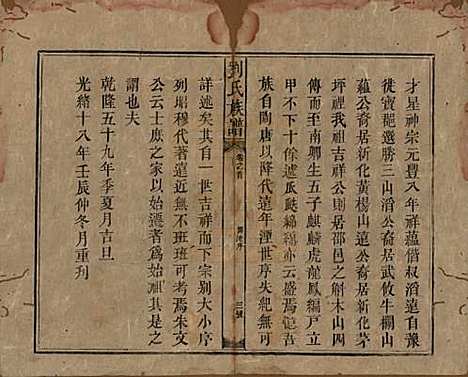 才星神宗元豐八年祥蘊偕叔滔遠自豫
徙寶麗選勝三山滔公裔居武攸牛欄山
蘊公裔居新化黃楊山遠公裔居新化茅
坪裡我祖吉祥公則居邵邑之斛木山四
傳而至南卿生五子麒麟虎龍鳳編戶立
甲不下十餘遽瓜瓞綿穩亦云盛焉
族自陶唐以降代遠年湮世序失紀無可
劉氏族譜
卷之首
三號
詳述矣其自一世吉祥而下宗別大小序
列昭穆代著遠近無不班班可考焉朱文
公云士庶之家以始遷者為始祖其此之
謂也夫
乾隆五十九年季夏月吉旦
光緒十八年壬辰仲冬月重刊